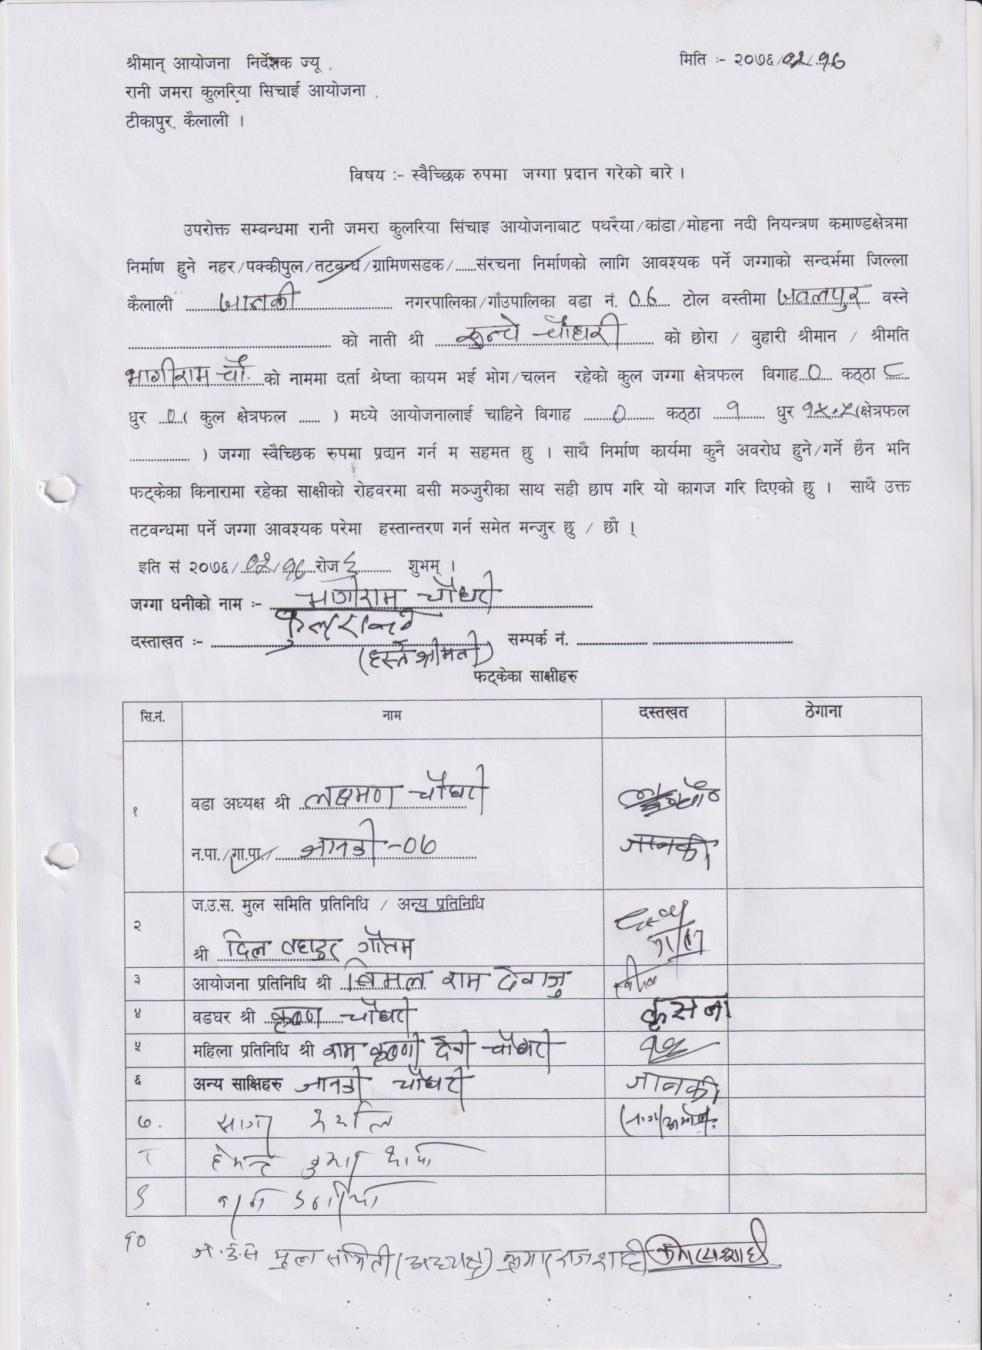 श्रीमान् आयोजना निर्देशक ज्यू .
मिति :- २०७६/०२/१६
रानी जमरा कुलरिया सिचाई आयोजना .
टीकापुर, कैलाली ।
विषय :- स्वैच्छिक रुपमा जग्गा प्रदान गरेको बारे ।
उपरोक्त सम्बन्धमा रानी जमरा कुलरिया सिंचाइ आयोजनाबाट पथरैया/कांडा/मोहना नदी नियन्त्रण कमाण्डक्षेत्रमा
निर्माण हुने नहर/पक्कीपुल/तटबन्ध/ग्रामिणसडक/......संरचना निर्माणको लागि आवश्यक पर्ने जग्गाको सन्दर्भमा जिल्ला
कैलाली जानकी नगरपालिका/गाँउपालिका वडा नं. ०६ टोल वस्तीमा वस्ने
को नाती श्री चौधरी को छोरा / बुहारी श्रीमान / श्रीमति
भागीराम चौ. को नाममा दर्ता श्रेष्ता कायम भई भोग/चलन रहेको कुल जग्गा क्षेत्रफल विगाह ० कठ्ठा ८
धुर ० ( कुल क्षेत्रफल ...... ) मध्ये आयोजनालाई चाहिने विगाह ० कठ्ठा १ धुर १५.५ (क्षेत्रफल
.................. ) जग्गा स्वैच्छिक रुपमा प्रदान गर्न म सहमत छु । साथै निर्माण कार्यमा कुनै अवरोध हुने/गर्ने छैन भनि
फट्केका किनारामा रहेका साक्षीको रोहवरमा वसी मञ्जुरीका साथ सही छाप गरि यो कागज गरि दिएको छु । साथै उक्त
तटवन्धमा पर्ने जग्गा आवश्यक परेमा हस्तान्तरण गर्न समेत मन्जुर छु / छौ ।
इति सं २०७६/०२/१६ रोज ६ शुभम् ।
जग्गा धनीको नाम :- भागीराम चौधरी
दस्ताखत :- सम्पर्क नं.
(हस्ते श्रीमती)
फट्केका साक्षीहरु
सि.नं. नाम दस्तखत ठेगाना
१ वडा अध्यक्ष श्री लक्ष्मण चौधरी
न.पा./गा.पा. जानकी -०६ जानकी
२ ज.उ.स. मुल समिति प्रतिनिधि / अन्य प्रतिनिधि
श्री दिल बहादुर गौतम
३ आयोजना प्रतिनिधि श्री बिमल राम देवाजु
४ वडघर श्री कृष्ण चौधरी
५ महिला प्रतिनिधि श्री राम कृष्णी देवी चौधरी
६ अन्य साक्षिहरु जानकी चौधरी जानकी
७.
८
९
१० ज.उ.स मुल समिती (अध्यक्ष)